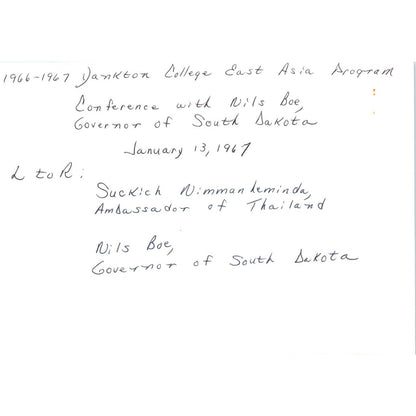 1966-1967 Yankton College East Asia Program
Conference with Nils Boe,
Governor of South Dakota
January 13, 1967
L to R:
Suckich Nimmanheminda,
Ambassador of Thailand
Nils Boe,
Governor of South Dakota